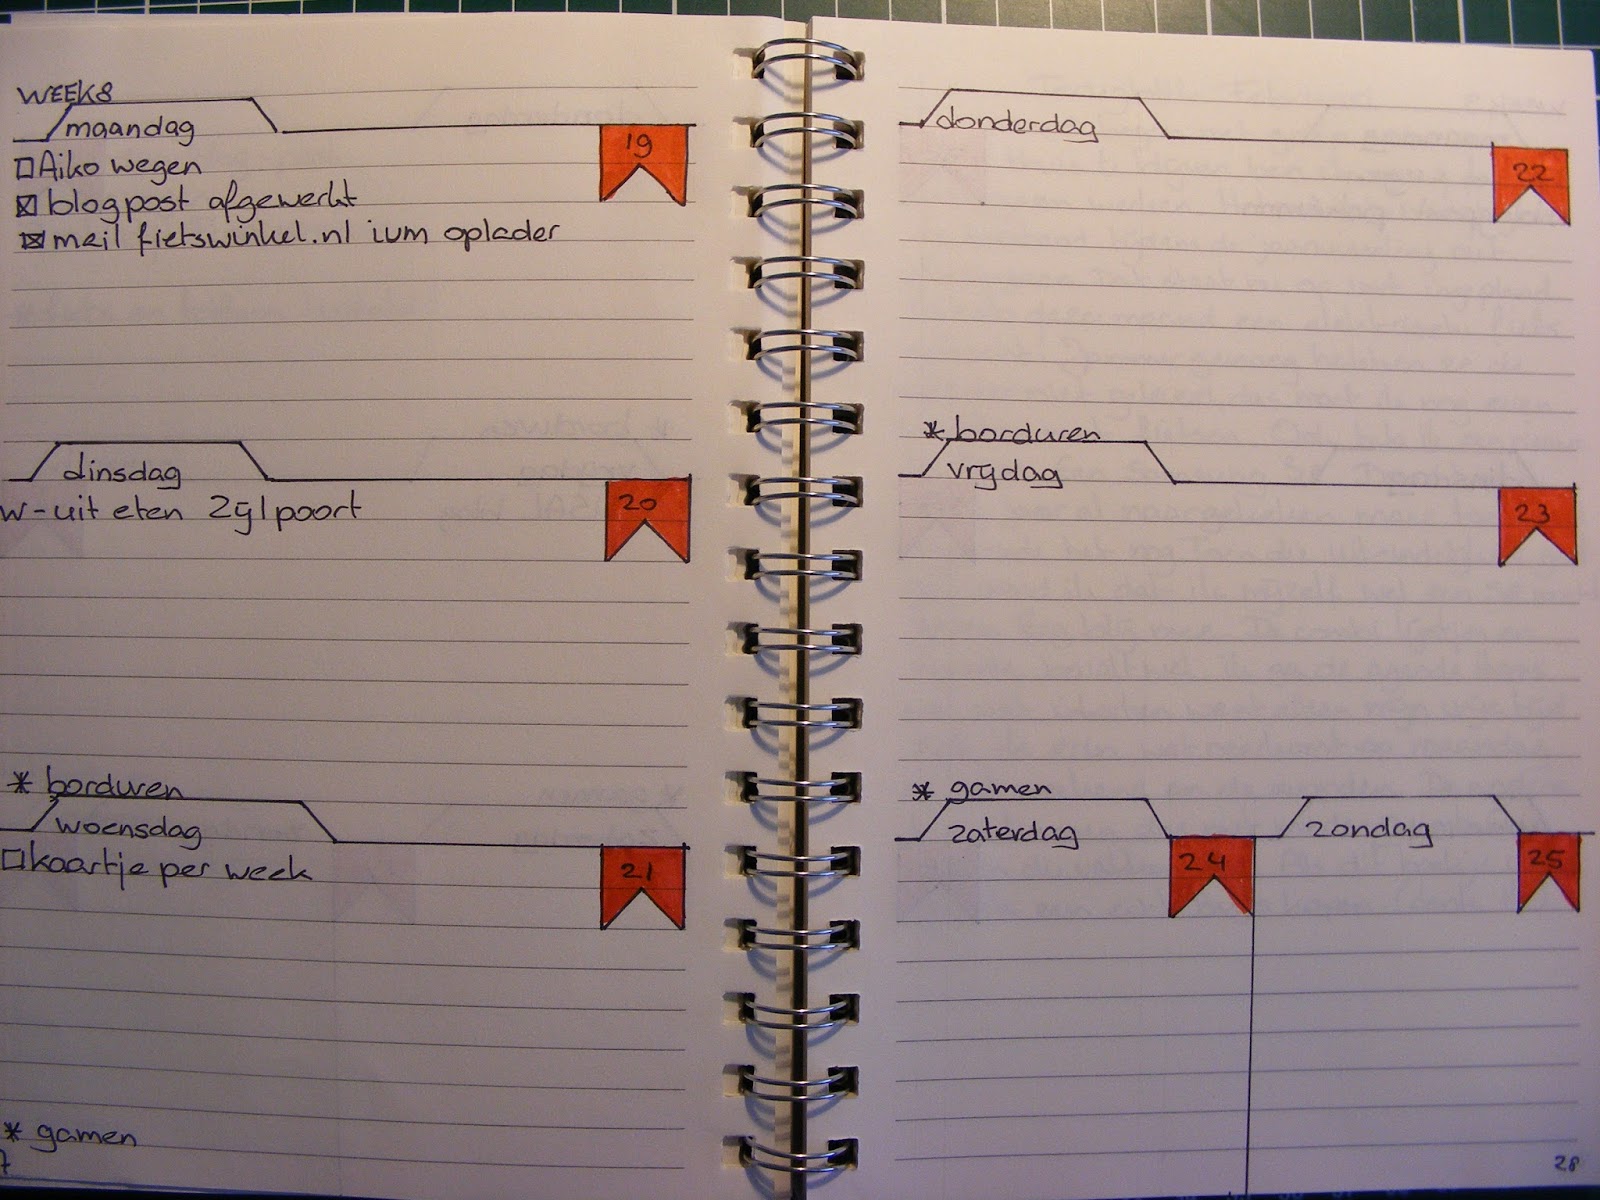 WEEK8
maandag
19
Aiko wegen
blogpost afgewerkt
mail fietswinkel.nl ivm oplader
dinsdag
20
w-uit eten Zijlpoort
* borduren
woensdag
21
kaartje per week
* gamen
7
donderdag
22
* borduren
vrijdag
23
* gamen
zaterdag
24
zondag
25
28